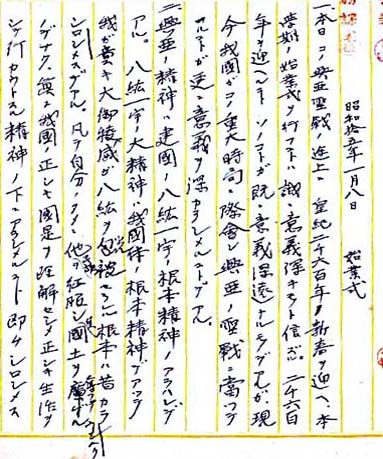 昭和拾五年一月八日　始業式
一、本日コノ興亜聖戦ノ途上ニ皇紀二千六百年ノ新春ヲ迎ヘ、本
学期ノ始業式ヲ行フコトハ誠ニ意義深キモノト信ズ。二千六百
年ヲ迎ヘシコトソノコトガ既ニ意義深遠ナルモノデアルガ、現
今我國ガコノ重大時局ニ際會シ興亜ノ聖戦ニ當ツテ
ヰルコトガ更ニ意義ヲ深カラシメルノデアル。
二、興亜ノ精神ハ建國ノ八紘一宇ノ根本精神ノアラハレデ
アル。八紘一宇ノ大精神ハ我國体ノ根本精神デアツテ
我ガ貴キ大御稜威ガ八紘ヲ包被スルニ根本ハ昔カラ
シロシメスデアル。凡ソ自分ノタメニ他ヲ征服シ國土ヲ
ナク、眞ニ我國ノ正シキ國是ヲ理解セシメ正シキ生活ヲ
シテ行カウトスル精神ノ下ニアラシメルコト即チシロシメス